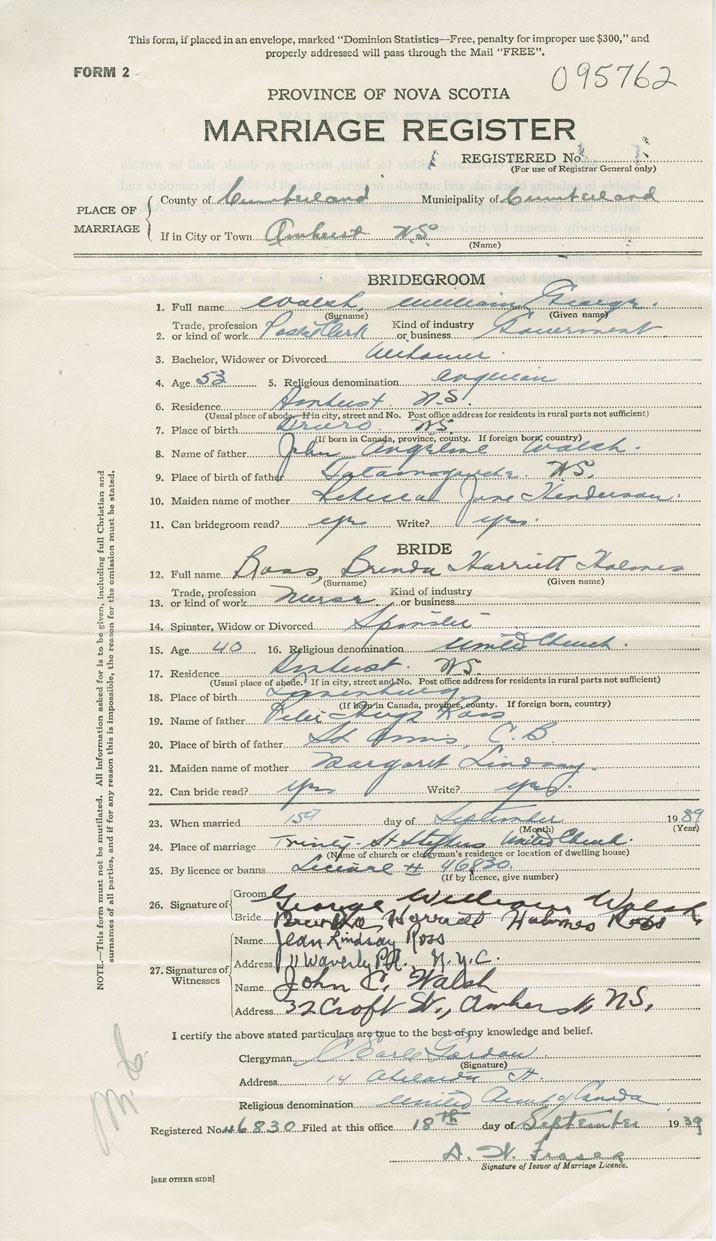 This form, if placed in an envelope, marked "Dominion Statistics—Free, penalty for improper use $300," and
properly addressed will pass through the Mail "FREE".
FORM 2
095762
PROVINCE OF NOVA SCOTIA
MARRIAGE REGISTER
REGISTERED No.
(For use of Registrar General only)
PLACE OF MARRIAGE
County of Cumberland Municipality of Cumberland
If in City or Town Amherst N.S.
(Name)
BRIDEGROOM
1. Full name Walsh, William George.
(Surname) (Given name)
2. Trade, profession or kind of work Postal Clerk Kind of industry or business Government
3. Bachelor, Widower or Divorced
4. Age 53 5. Religious denomination
6. Residence Amherst N.S.
(Usual place of abode. If in city, street and No. Post office address for residents in rural parts not sufficient)
7. Place of birth Truro N.S.
(If born in Canada, province, county. If foreign born, country)
8. Name of father John Angeline Walsh.
9. Place of birth of father Tatamagouche N.S.
10. Maiden name of mother Rebecca Jane Henderson.
11. Can bridegroom read? yes Write? yes.
BRIDE
12. Full name Ross, Brenda Harriett Holmes
(Surname) (Given name)
13. Trade, profession or kind of work Nurse Kind of industry or business
14. Spinster, Widow or Divorced Spinster
15. Age 40 16. Religious denomination United Church.
17. Residence Amherst. N.S.
(Usual place of abode. If in city, street and No. Post office address for residents in rural parts not sufficient)
18. Place of birth Lunenburg
(If born in Canada, province, county. If foreign born, country)
19. Name of father Peter Ross
20. Place of birth of father St Anns, C.B.
21. Maiden name of mother Margaret Lindsay.
22. Can bride read? yes Write? yes
23. When married 15th day of September 1939
(Month) (Year)
24. Place of marriage Trinity-St Stephens United Church.
(Name of church or clergyman's residence or location of dwelling house)
25. By licence or banns License # 46830
(If by licence, give number)
26. Signature of
Groom George William Walsh
Bride Brenda Harriett Holmes Ross
27. Signatures of Witnesses
Name Jean Lindsay Ross
Address 11 Waverly Pl. N.Y.C.
Name John C. Walsh
Address 32 Croft St., Amherst, N.S.
I certify the above stated particulars are true to the best of my knowledge and belief.
Clergyman C. Earle Gordon
(Signature)
Address 14 Adelaide St.
Religious denomination United Church of Canada
Registered No. 46830 Filed at this office 18th day of September 1939
D. W. Fraser
Signature of Issuer of Marriage Licence.
[SEE OTHER SIDE]
NOTE.—This form must not be mutilated. All information asked for is to be given, including full Christian and
surnames of all parties, and if for any reason this is impossible, the reason for the omission must be stated.